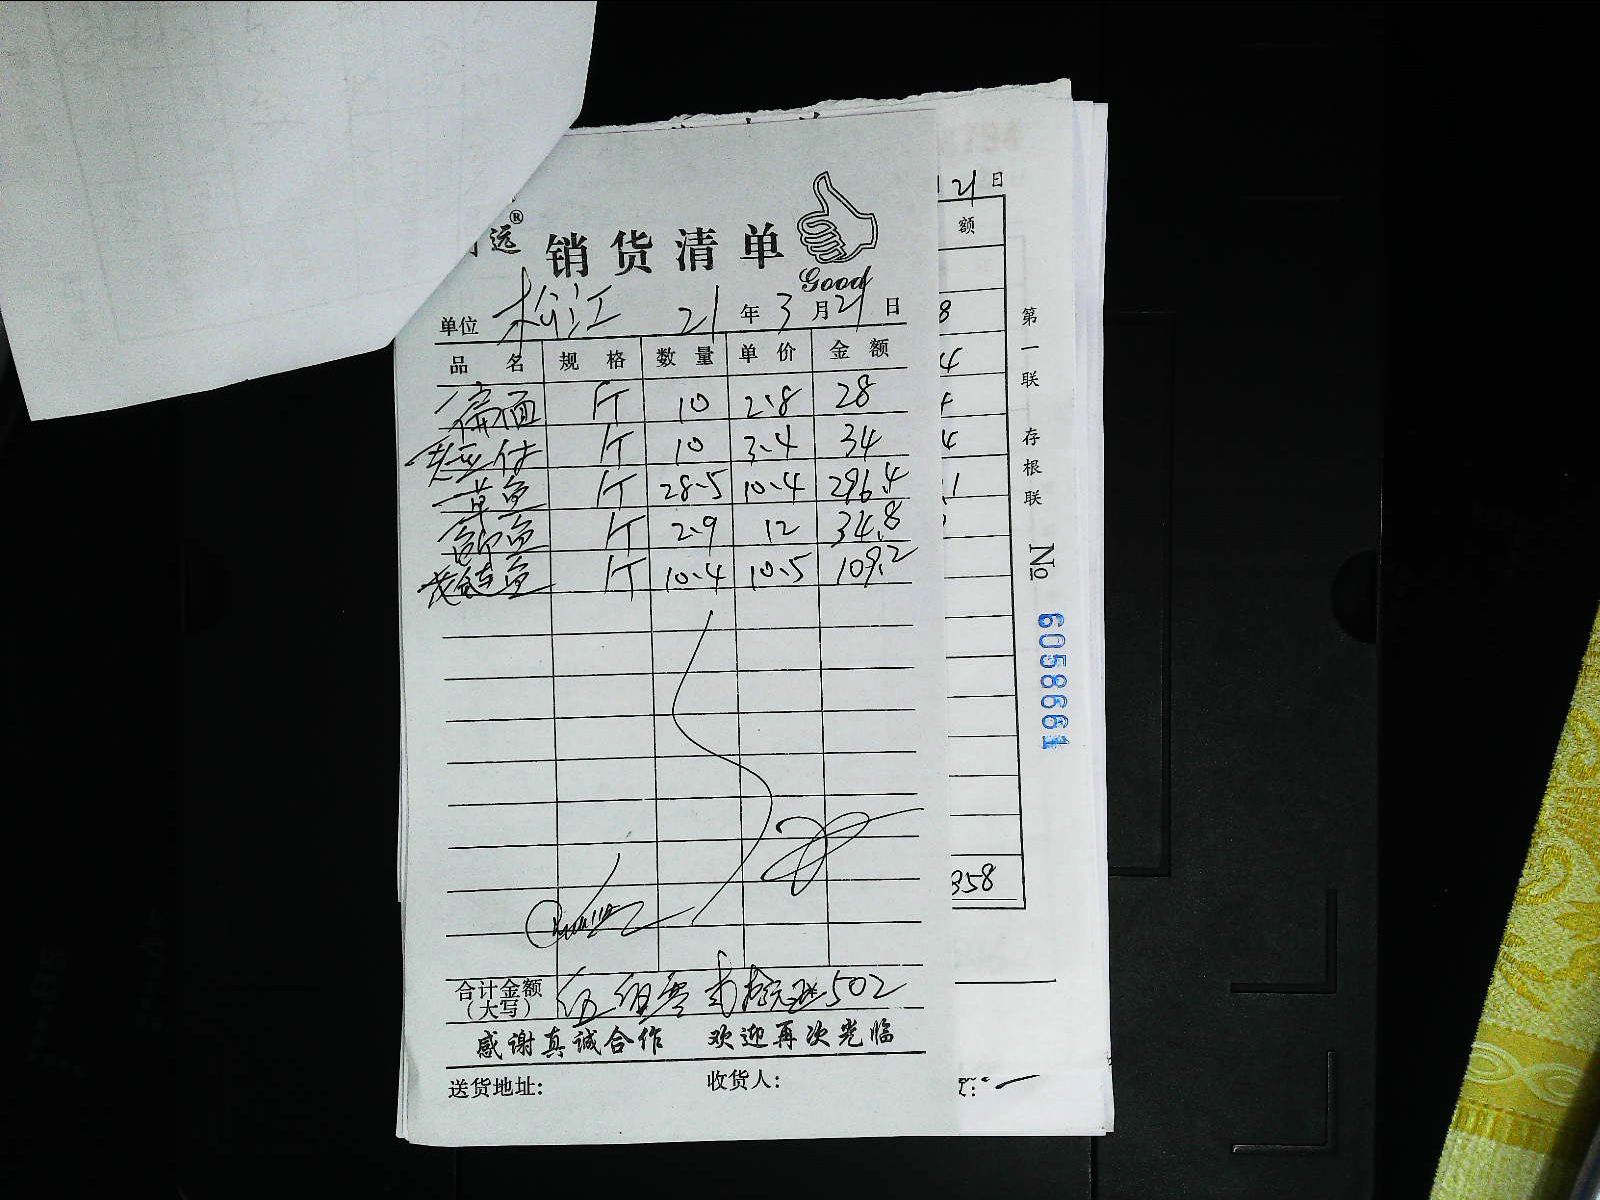 远®
销货清单
Good
单位 松江 21年3月21日
品名 规格 数量 单价 金额
扁面 斤 10 2.8 28
斤 10 3.4 34
草鱼 斤 28.5 10.4 296.4
鱼 斤 2.9 12 34.8
花鲢鱼 斤 10.4 10.5 109.2
合计金额（大写） 伍佰零 502
感谢真诚合作 欢迎再次光临
送货地址： 收货人：
21日
额
8
4
4
1
358
第一联 存根联 № 6058661